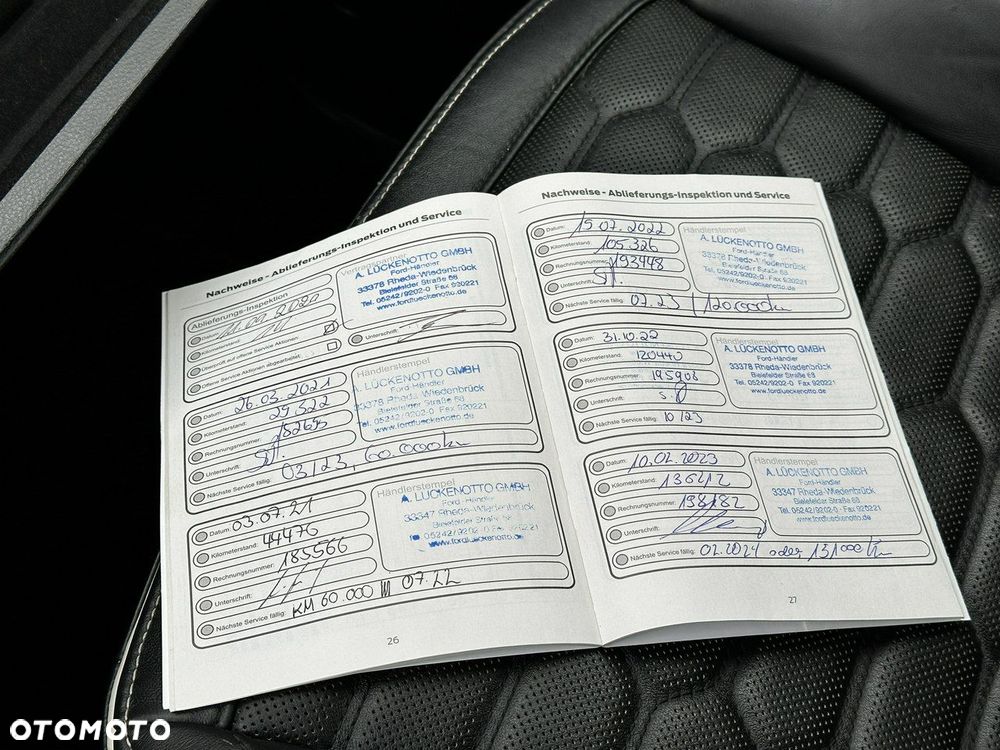 Nachweise - Ablieferungs-Inspektion und Service
Ablieferungs-Inspektion
Datum:
Kilometerstand: 10
Überprüft auf offene Service Aktionen:
Offene Service Aktionen abgearbeitet:
Vertragspartner
A. LÜCKENOTTO GMBH
Ford-Händler
33378 Rheda-Wiedenbrück
Bielefelder Straße 68
Tel. 05242/9202-0 Fax 920221
www.fordlueckenotto.de
Unterschrift:
Datum: 26.03.2021
Kilometerstand: 29.322
Rechnungsnummer: 182695
Unterschrift:
Nächste Service fällig: 03/23, 60.000km
Händlerstempel
A. LÜCKENOTTO GMBH
Ford-Händler
33378 Rheda-Wiedenbrück
Bielefelder Straße 68
Tel. 05242/9202-0 Fax 920221
www.fordlueckenotto.de
Datum: 03.07.21
Kilometerstand: 44476
Rechnungsnummer: 185566
Unterschrift:
Nächste Service fällig: KM 60.000 07.22
Händlerstempel
A. LÜCKENOTTO GMBH
Ford-Händler
33347 Rheda-Wiedenbrück
Bielefelder Straße 68
05242/9202-0 Fax 920221
www.fordlueckenotto.de
26
Nachweise - Ablieferungs-Inspektion und Service
Datum: 15.07.2022
Kilometerstand: 105.326
Rechnungsnummer: 193448
Unterschrift:
Nächste Service fällig: 07.23 / 120000km
Händlerstempel
A. LÜCKENOTTO GMBH
Ford-Händler
33378 Rheda-Wiedenbrück
Bielefelder Straße 68
Tel. 05242/9202-0 Fax 920221
www.fordlueckenotto.de
Datum: 31.10.22
Kilometerstand: 120440
Rechnungsnummer: 195908
Unterschrift:
Nächste Service fällig: 10/23
Händlerstempel
A. LÜCKENOTTO GMBH
Ford-Händler
33378 Rheda-Wiedenbrück
Bielefelder Straße 68
Tel. 05242/9202-0 Fax 920221
www.fordlueckenotto.de
Datum: 10.02.2023
Kilometerstand: 136212
Rechnungsnummer: 198182
Unterschrift:
Nächste Service fällig: 02.2024 oder 151000 km
Händlerstempel
A. LÜCKENOTTO GMBH
Ford-Händler
33347 Rheda-Wiedenbrück
Bielefelder Straße 68
Tel. 05242/9202-0 Fax 920221
www.fordlueckenotto.de
27
OTOMOTO